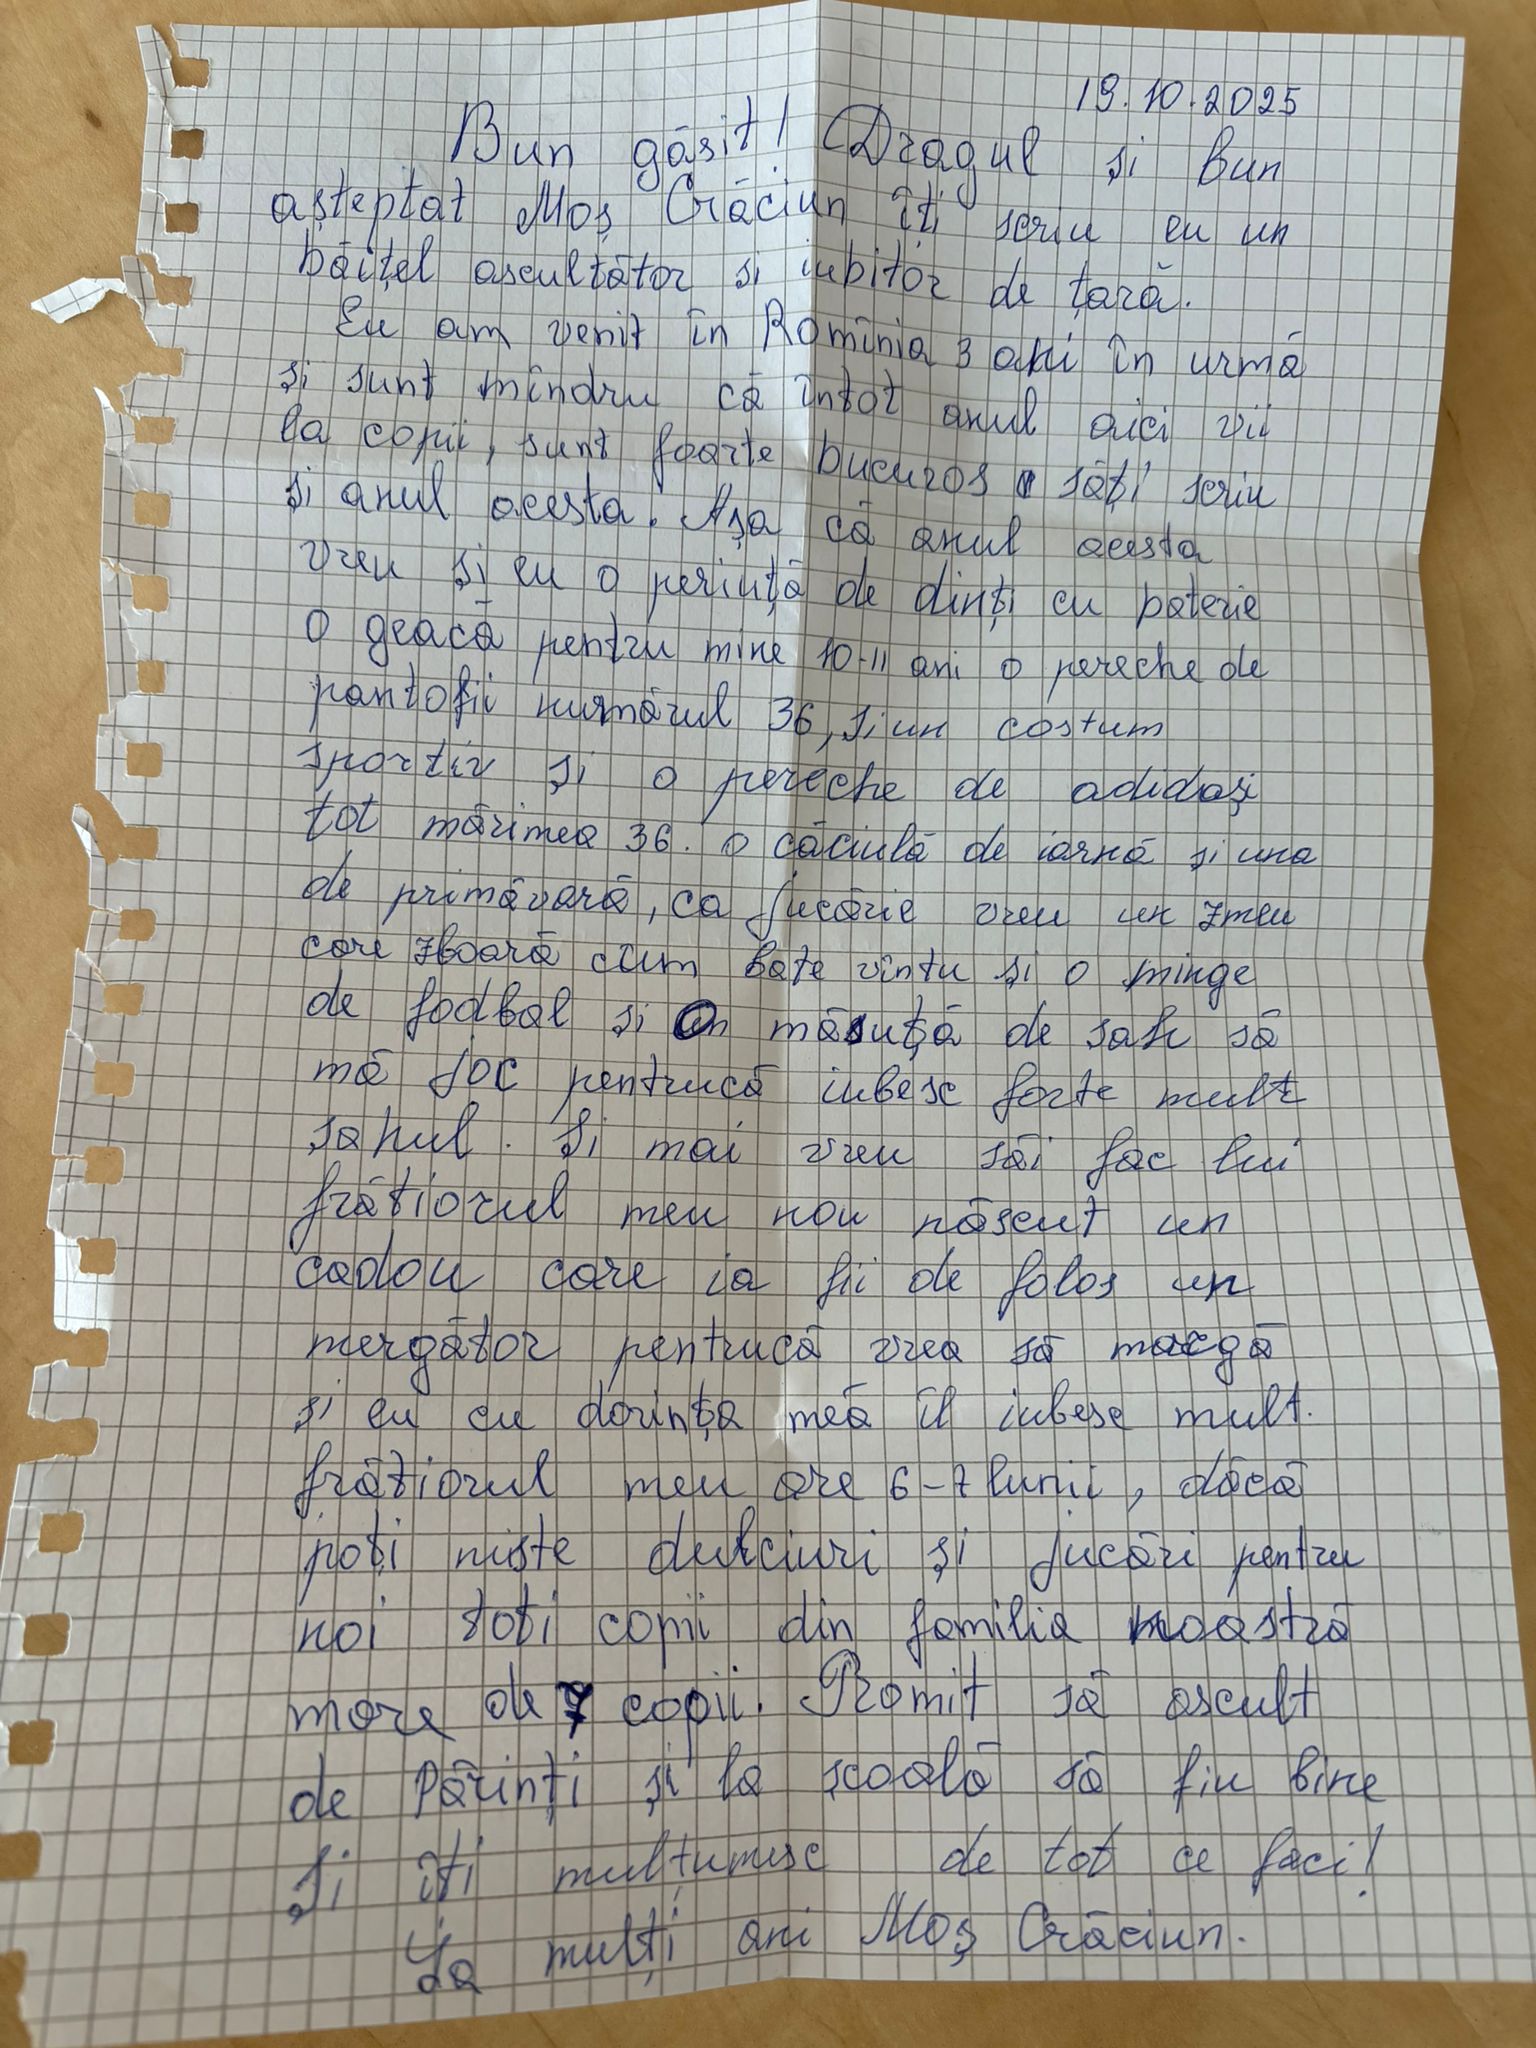 19.10.2025
Bun găsit! Dragul și bun
așteptat Moș Crăciun îți scriu eu un
băițel ascultător si iubitor de țară.
Eu am venit în Romînia 3 ani în urmă
și sunt mîndru că întot anul aici vii
la copii, sunt foarte bucuros săți scriu
și anul acesta. Așa că anul acesta
vreu și eu o periuță de dinți cu baterie
o geacă pentru mine 10-11 ani o pereche de
pantofii numărul 36, și un costum
sportiv și o pereche de adidași
tot mărimea 36. o căciulă de iarnă și una
de primăvară, ca jucărie vreu un zmeu
care zboară cum bate vîntu și o minge
de fodbal și on măsuță de sah să
mă joc pentrucă iubesc forte mult
sahul. Și mai vreu săi fac lui
frățiorul meu nou născut un
cadou care ia fii de folos un
mergător pentrucă vrea să meargă
și eu cu dorința mea îl iubesc mult.
frățiorul meu are 6-7 lunii, dăcă
poți niște dulciuri și jucări pentru
noi toți copii din familia noastră
mare de 7 copii. Promit să ascult
de Părinți și la școală să fiu bine
Și îți mulțumesc de tot ce faci!
La mulți ani Moș Crăciun.